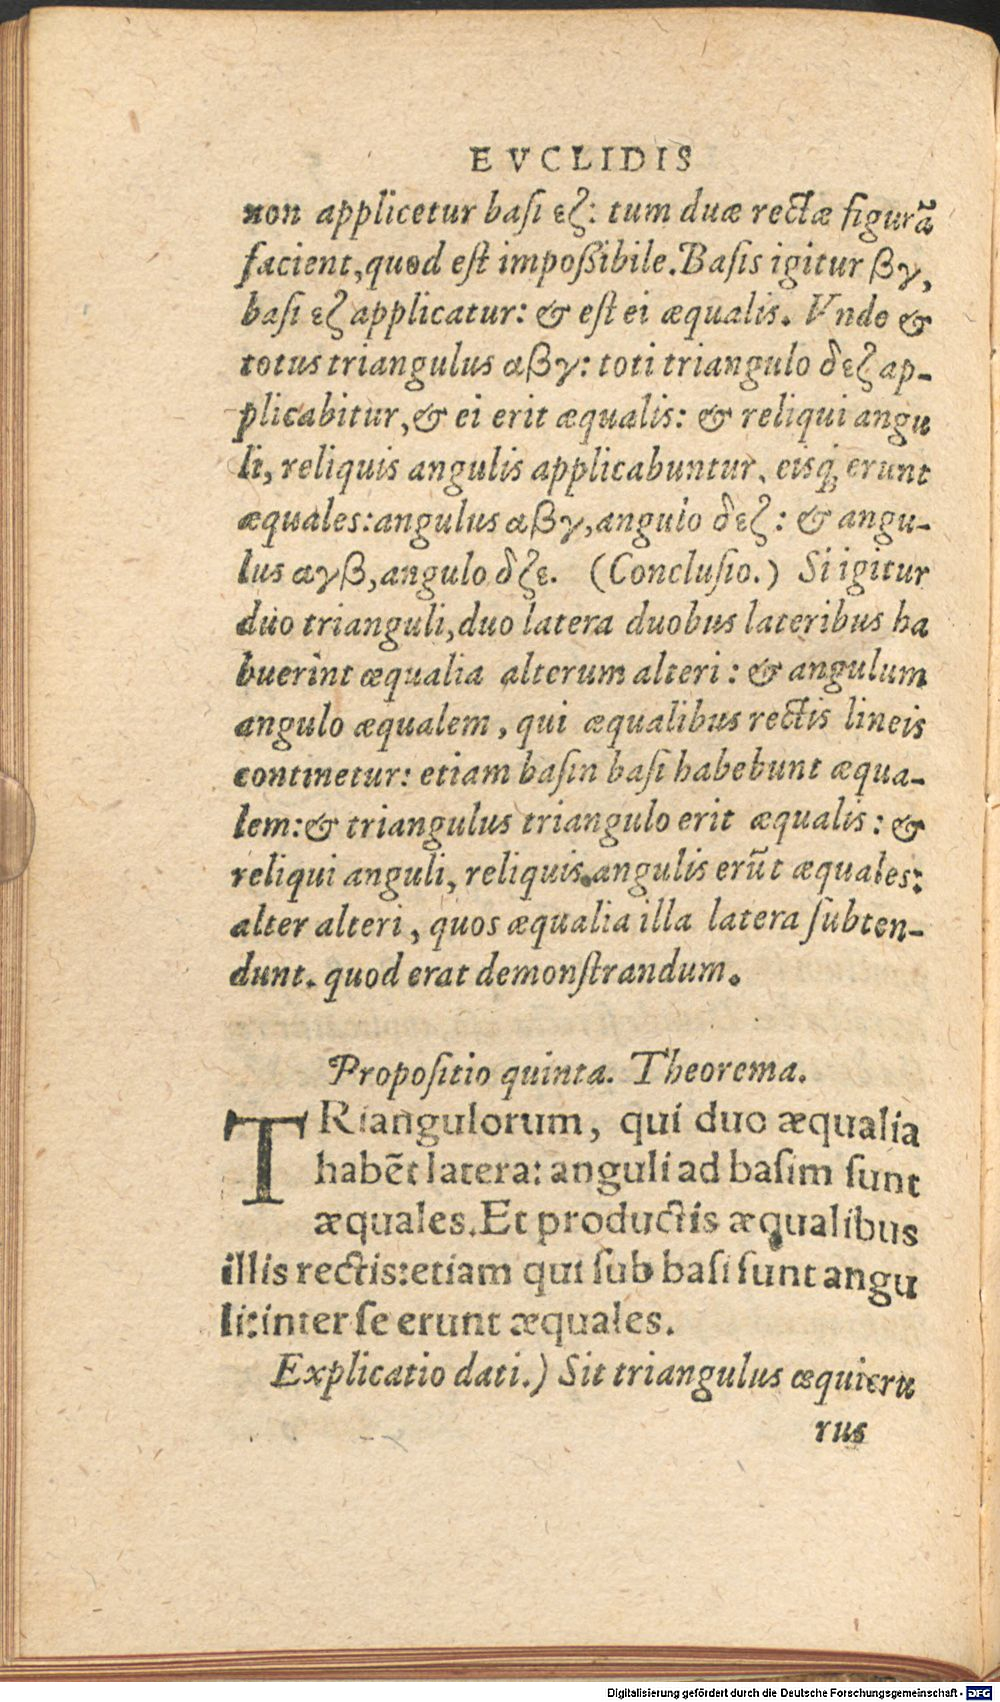 EVCLIDIS
non applicetur baſi εζ: tum duæ rectæ figurã
facient, quod eſt impoſsibile. Baſis igitur βγ,
baſi εζ applicatur: & eſt ei æqualis. Vnde &
totus triangulus αβγ: toti triangulo δεζ ap-
plicabitur, & ei erit æqualis: & reliqui angu
li, reliquis angulis applicabuntur, eisq́; erunt
æquales: angulus αβγ, angulo δεζ: & angu-
lus αγβ, angulo δζε. (Concluſio.) Si igitur
duo trianguli, duo latera duobus lateribus ha
buerint æqualia alterum alteri: & angulum
angulo æqualem, qui æqualibus rectis lineis
continetur: etiam baſin baſi habebunt æqua-
lem: & triangulus triangulo erit æqualis: &
reliqui anguli, reliquis angulis erũt æquales:
alter alteri, quos æqualia illa latera ſubten-
dunt. quod erat demonſtrandum.
Propoſitio quinta. Theorema.
TRiangulorum, qui duo æqualia
habẽt latera: anguli ad baſim ſunt
æquales. Et productis æqualibus
illis rectis: etiam qui ſub baſi ſunt angu
li: inter ſe erunt æquales.
Explicatio dati.) Sit triangulus æquicru
rus
Digitalisierung gefördert durch die Deutsche Forschungsgemeinschaft - DFG